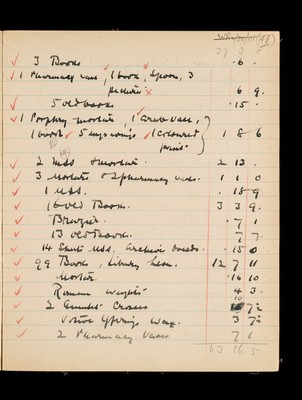 3 Books . 6 .
1 Pharmacy vase, 1 book, Spoon, 3
pictures x 6 9.
5 old books . 15 .
1 Porphry mortar, 1 Crab vase,
1 book 5 engravings 1 coloured
print 1 8 6
2 MSS + mortar. 2 13 .
3 Mortars + 2 pharmacy vases. 1 1 0
1 MSS. . 18 9
16 old Books. 3 3 9.
Brazier. . 7 1
13 old Books. 7 7.
14 MSS, . 15 0
99 Books, Library 12 7 11
Mortar. . 16 10
Roman weights 4 3.
2 Cases 7½
Votive offerings Wax. 3 7½
2 Pharmacy Vases 7 6
63 16 5